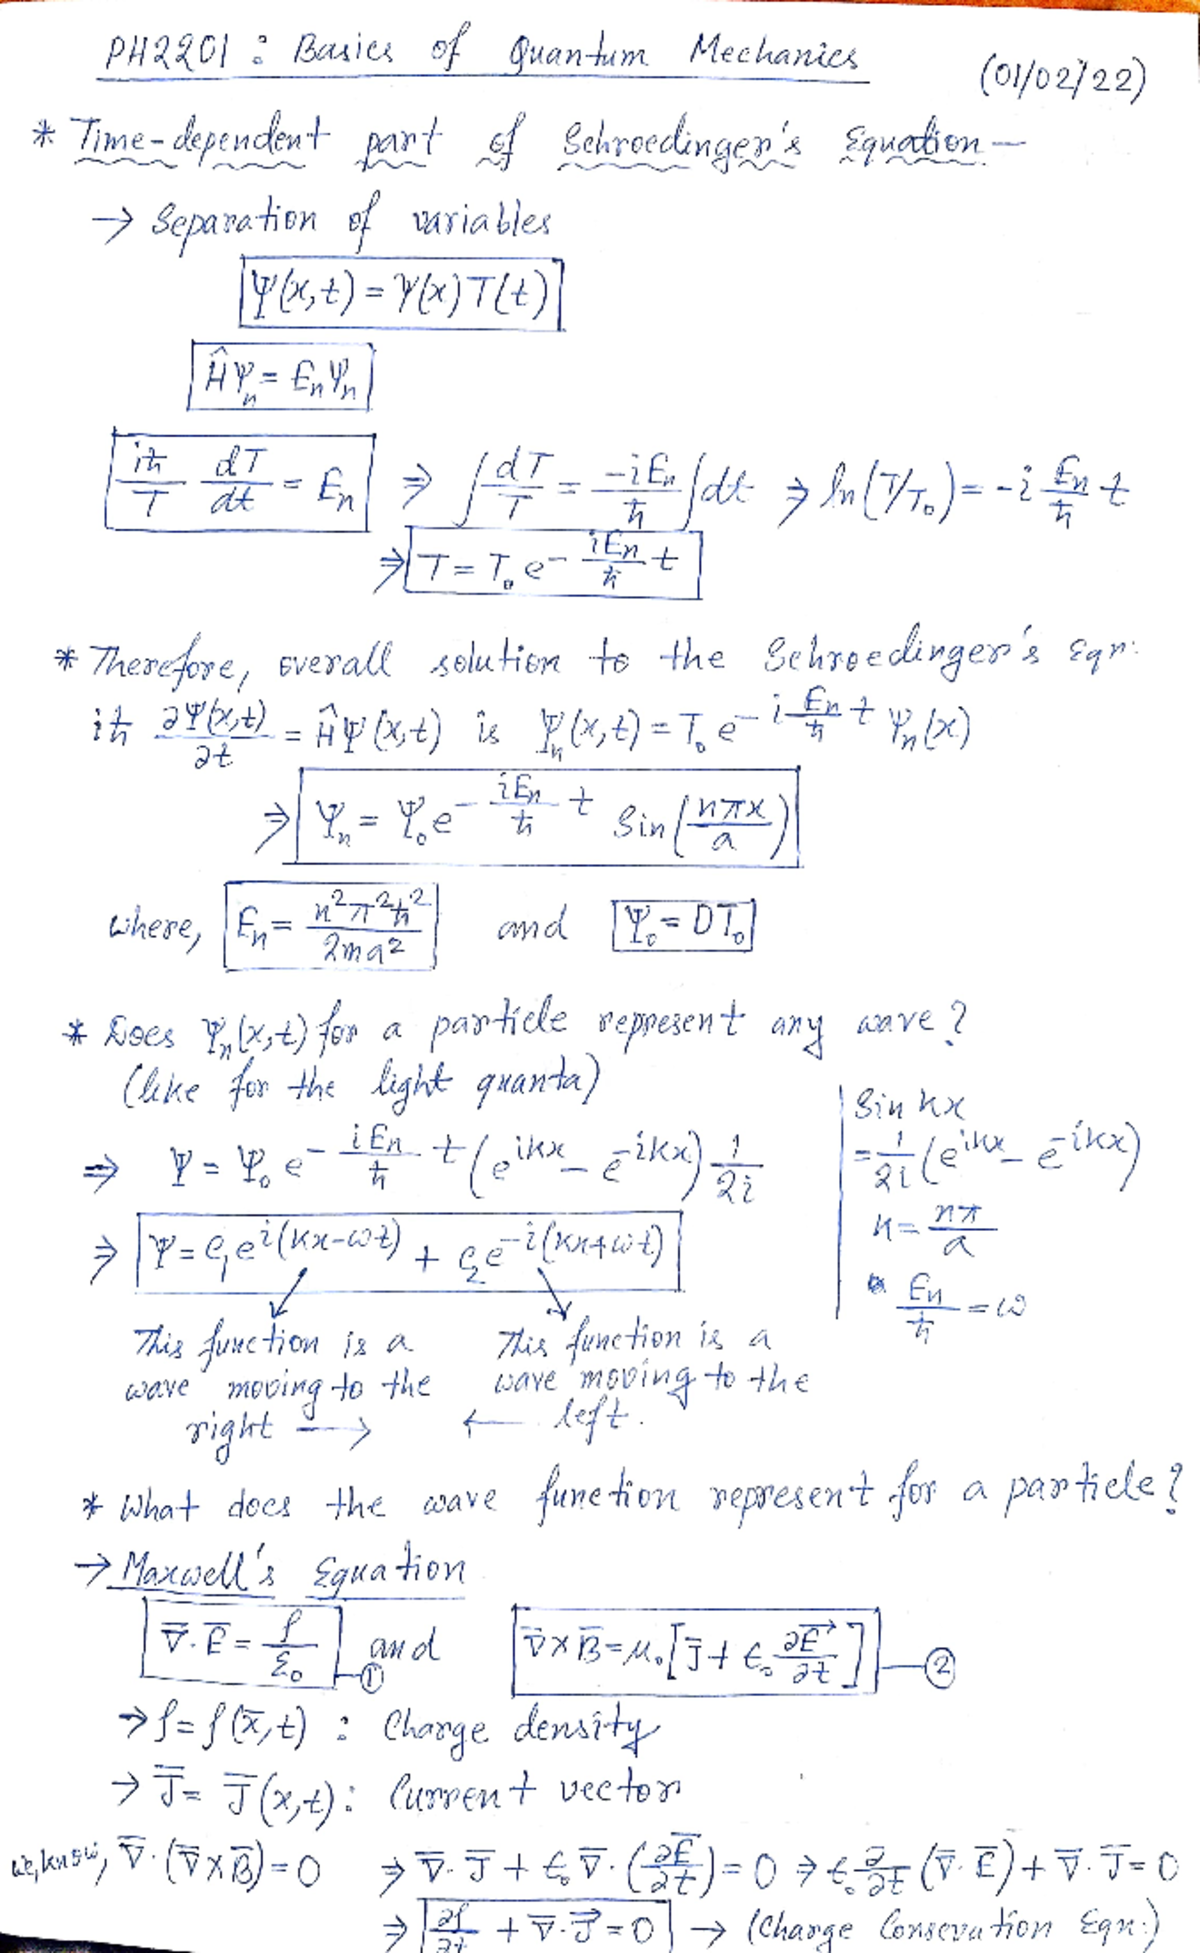 PH2201 : Basics of Quantum Mechanics
(01/02/22)
* Time-dependent part of Schroedinger's Equation —
→ Separation of variables
Ψ(x,t) = ψ(x) T(t)
ĤΨₙ = EₙΨₙ
iħ/T dT/dt = Eₙ ⇒ ∫ dT/T = -iEₙ/ħ ∫dt ⇒ ln(T/T₀) = -i Eₙ/ħ t
⇒ T = T₀ e^(- iEₙ/ħ t)
* Therefore, overall solution to the Schroedinger's Eqn.
iħ ∂Ψ(x,t)/∂t = ĤΨ(x,t) is Ψₙ(x,t) = T₀ e^(- i Eₙ/ħ t) Ψₙ(x)
⇒ Ψₙ = Ψ₀ e^(- iEₙ/ħ t) Sin(nπx/a)
where, Eₙ = n²π²ħ²/2ma² and Ψ₀ = DT₀
* Does Ψₙ(x,t) for a particle represent any wave?
(like for the light quanta)
⇒ Ψ = Ψ₀ e^(- iEₙ/ħ t) (e^(ikx) - e^(-ikx)) 1/2i
⇒ Ψ = C₁e^(i(kx-ωt)) + C₂e^(-i(kx+ωt))
Sin kx
= 1/2i (e^(ikx) - e^(-ikx))
k = nπ/a
Eₙ/ħ = ω
This function is a
wave moving to the
right →
This function is a
wave moving to the
← left.
* What does the wave function represent for a particle?
→ Maxwell's Equation
∇̄·Ē = ρ/ε₀ ① and ∇̄×B̄ = μ₀[J̄ + ε₀ ∂E⃗/∂t] — ②
→ ρ = ρ(x̄,t) : Charge density
→ J̄ = J̄(x,t) : Current vector
We, know, ∇̄·(∇̄×B̄) = 0 ⇒ ∇̄·J̄ + ε₀∇̄·(∂Ē/∂t) = 0 ⇒ ε₀ ∂/∂t (∇̄·Ē) + ∇̄·J̄ = 0
⇒ ∂ρ/∂t + ∇̄·J⃗ = 0 → (Charge Consevation Eqn.)